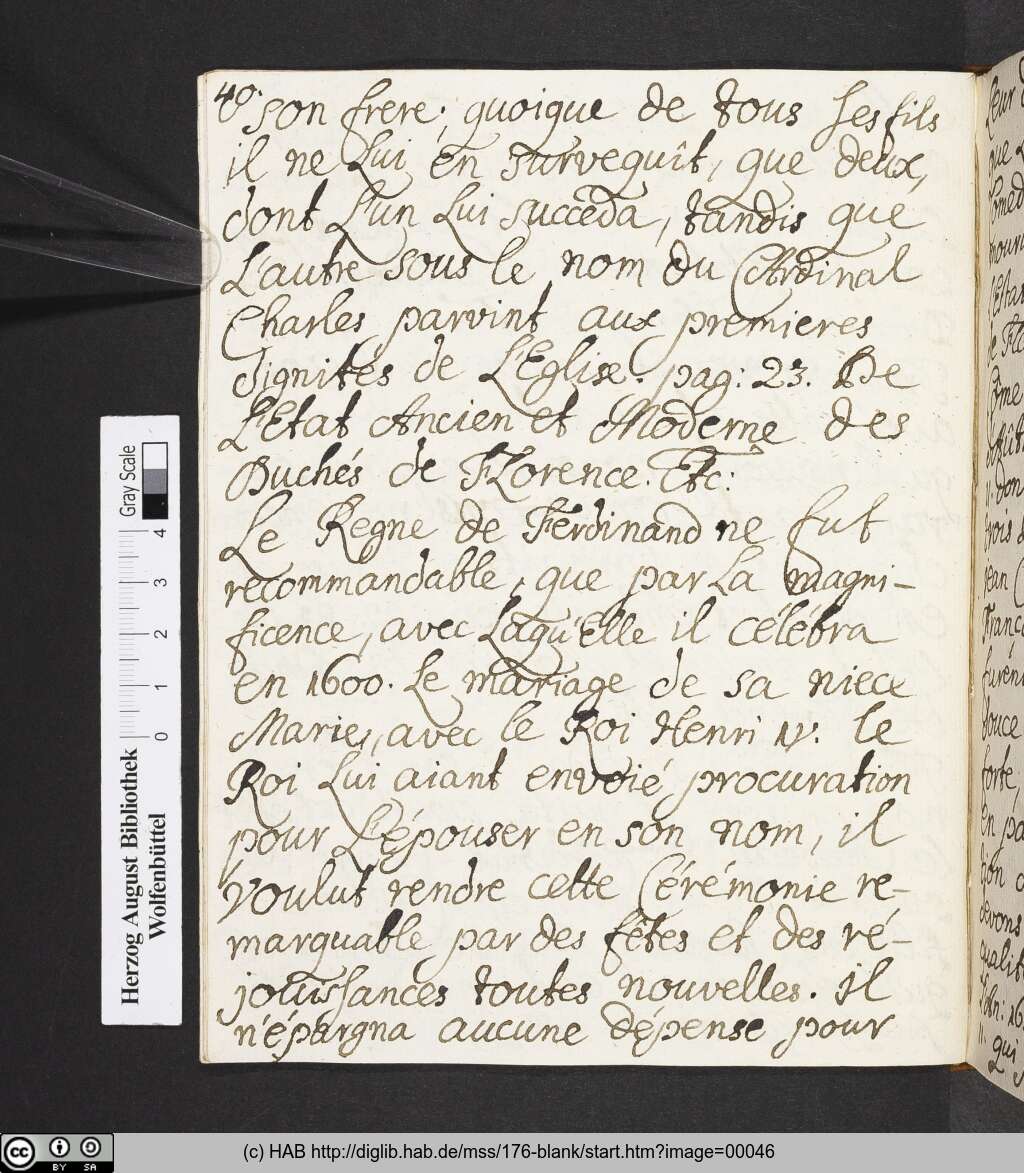 40.
son frere; quoique de tous ses fils
il ne Lui en survequît, que deux,
dont L'un Lui succéda, tandis que
L'autre sous le nom du Cardinal
Charles parvint aux premieres
dignités de L'Eglise. pag: 23. De
L'Etat Ancien et Moderne des
Duchés de Florence. Etc:
Le Regne de Ferdinand ne fut
recommandable, que par La magni-
ficence, avec Laqu'Elle il célébra
en 1600. Le mariage de sa niece
Marie, avec le Roi Henri IV. le
Roi Lui aiant envoié procuration
pour L'épouser en son nom, il
voulut rendre cette Cérémonie re-
marquable par des fêtes et des ré-
jouissances toutes nouvelles. il
n'épargna aucune dépense pour
Herzog August Bibliothek
Wolfenbüttel
Gray Scale
0 1 2 3 4
cc BY SA
(c) HAB http://diglib.hab.de/mss/176-blank/start.htm?image=00046